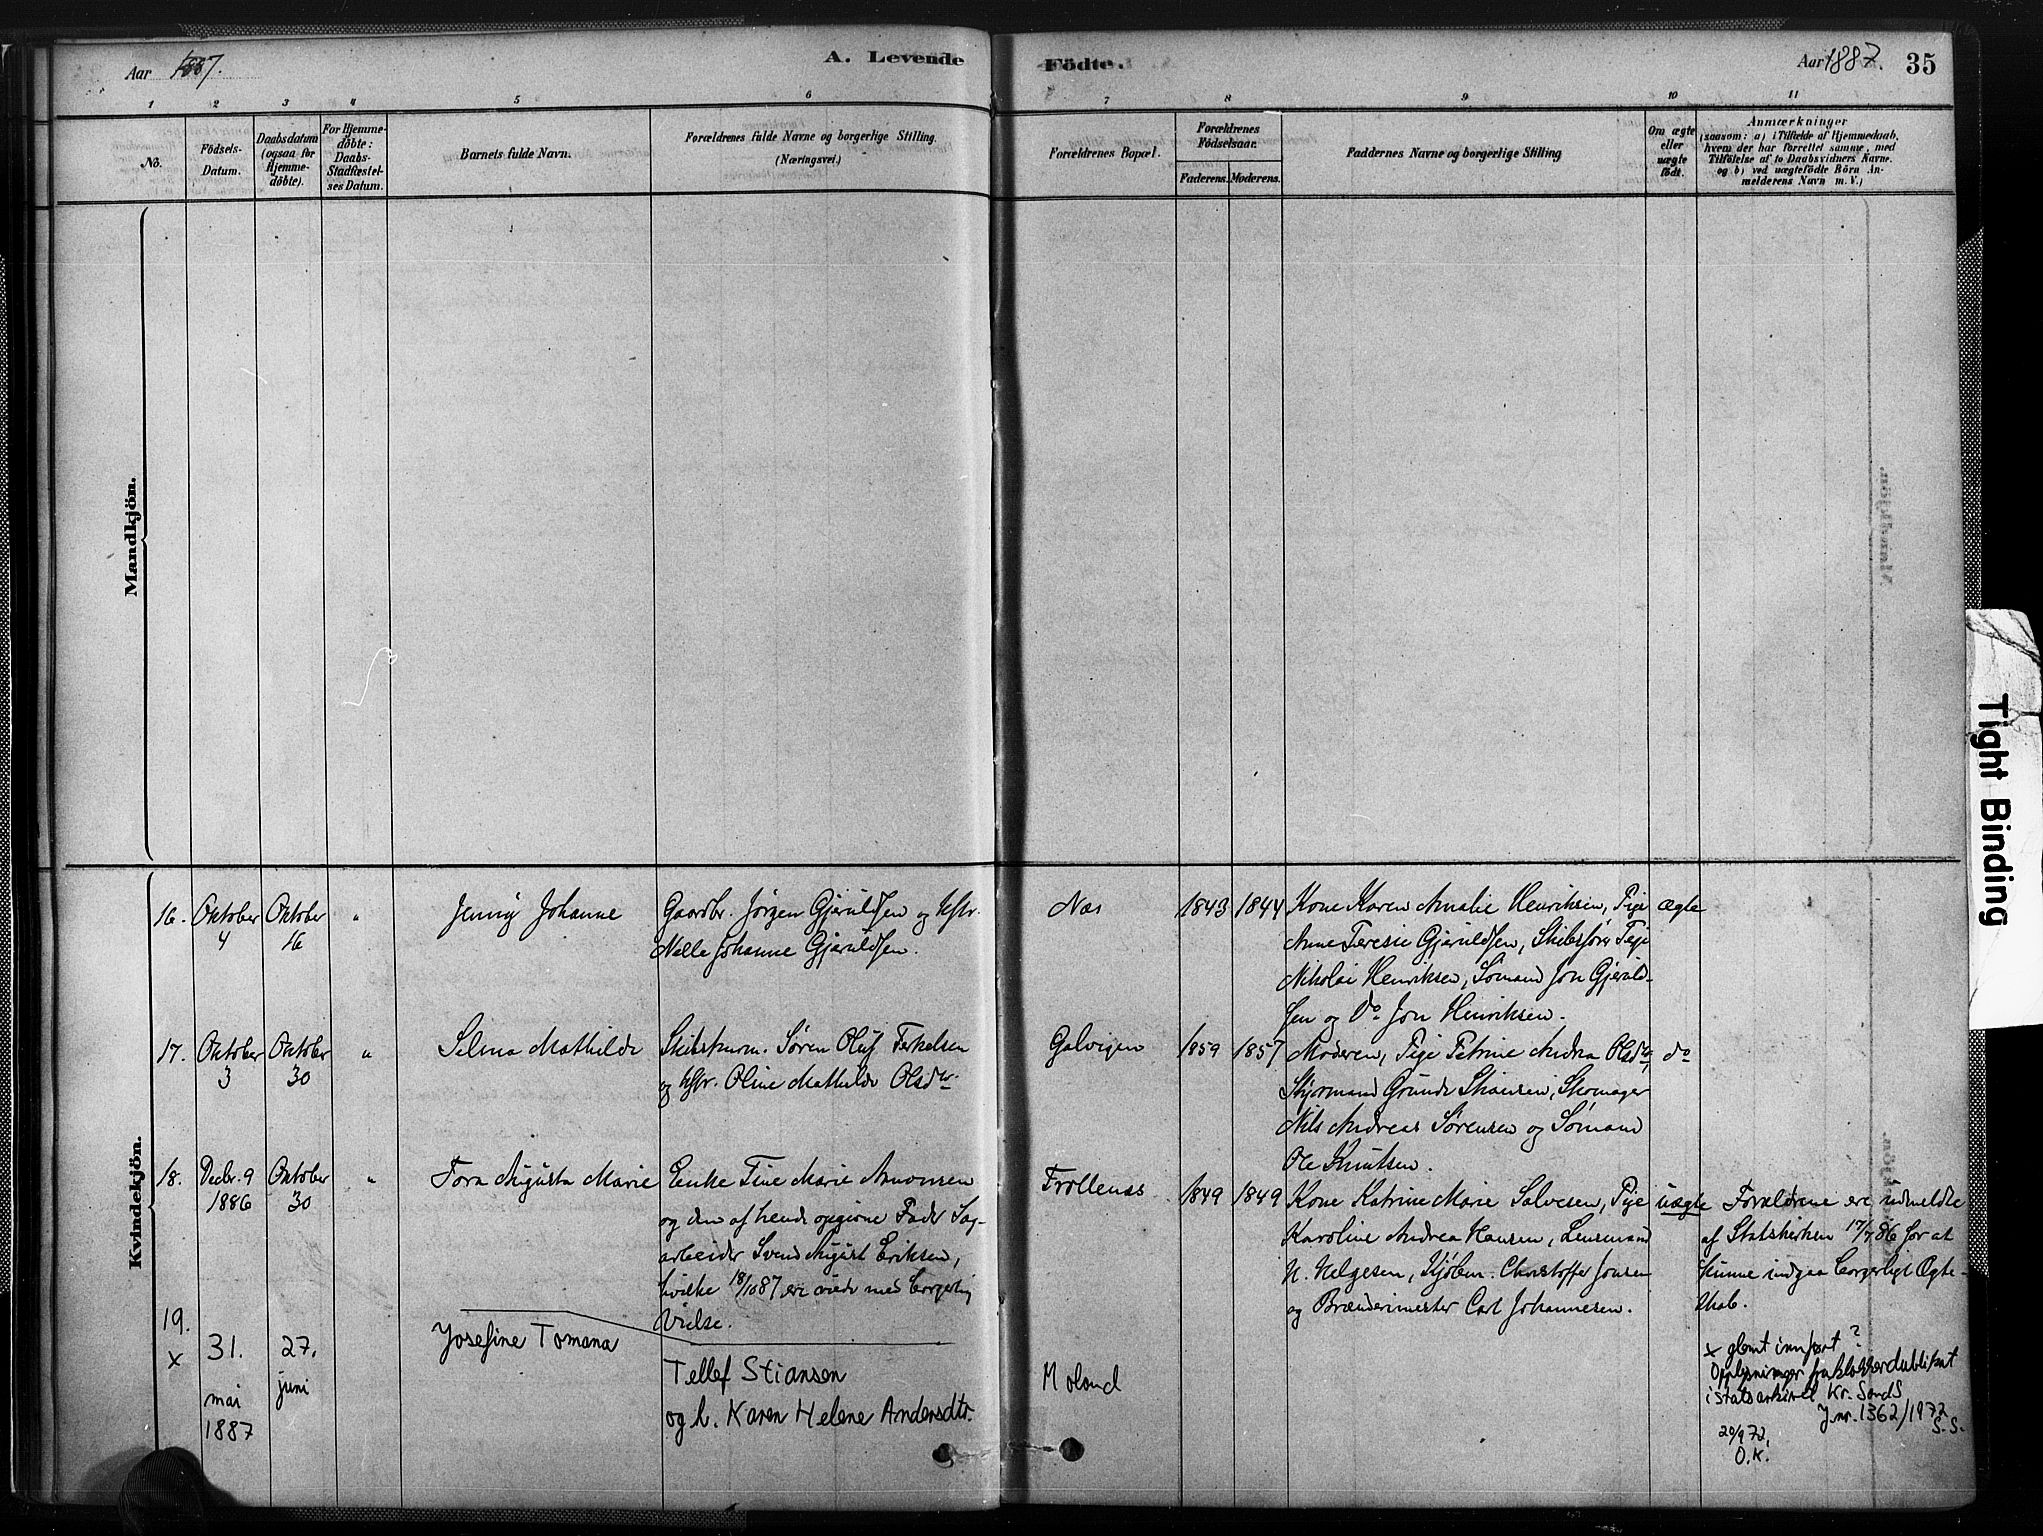 Aar 1887.
A. Levende
Födte.
Aar 1887.
35
1 2 3 4 5 6 7 8 9 10 11
No.
Födsels-
Datum.
Daabsdatum
(ogsaa for
Hjemme-
döbte).
For Hjemme-
döbte:
Daabs-
Stadfæstel-
ses Datum.
Barnets fulde Navn.
Forældrenes fulde Navne og borgerlige Stilling.
(Næringsvei.)
Forældrenes Bopæl.
Forældrenes
Födselsaar.
Faderens. Moderens.
Faddernes Navne og borgerlige Stilling
Om ægte
eller
uægte
födt.
Anmærkninger
(saasom: a) i Tilfælde af Hjemmedaab,
hvem der har forrettet samme, med
Tilföielse af to Daabsvidners Navne.
og b) ved uægtefödte Börn An-
melderens Navn m. V.)
Mandkjön.
Kvindekjön.
16.
Oktober
4
Oktober
16
"
Jenny Johanne
Gaardbr. Jörgen Gjeruldsen og Hstr.
Nelle Johanne Gjeruldsen.
Næs
1843 1844
Kone Karen Amalie Henriksen, Pige
Anne Teresie Gjeruldsen, Skibsförer Teje
Nikolai Henriksen, Sömand Jon Gjeruld-
sen og Do Jon Henriksen.
ægte
17.
Oktober
3
Oktober
30
"
Selma Mathilde
Skibstmrm. Sören Oluf Terkelsen
og Hstr. Oline Mathilde Olsdtr.
Galvigen
1859 1857
Moderen, Pige Petrine Andrea Olsdtr,
Styrmand Gunde Stiansen, Skomager
Nils Andreas Sörensen og Sömand
Ole Knutsen.
do
18.
Decbr. 9
1886
Oktober
30
"
Tora Augusta Marie
Enke Tine Marie Aanonsen
og den af hende opgivne Fader Sag-
arbeider Svend August Eriksen,
hvilke 18/10 87 ere viede med borgerlig
Vielse.
Frollenæs
1849 1849
Kone Katrine Marie Salvesen, Pige
Karoline Andrea Hansen, Lensmand
N. Helgesen, Kjöbm. Christoffer Jensen
og Brænderimester Carl Johannesen.
uægte
Forældrene ere udmeldte
af Statskirken 17/7 86 for at
kunne indgaa borgerligt Ægte-
skab.
19.
x
31.
mai
1887
27.
juni
Josefine Tomana
Tellef Stiansen
og h. Karen Helene Andersdtr.
Moland
x glemt innført?
Opplysninger fra klokkerdublikat
i statsarkivet Kr. Sand S
J.nr. 1362/1972
S.S.
20/9 72.
O.K.
Tight Binding